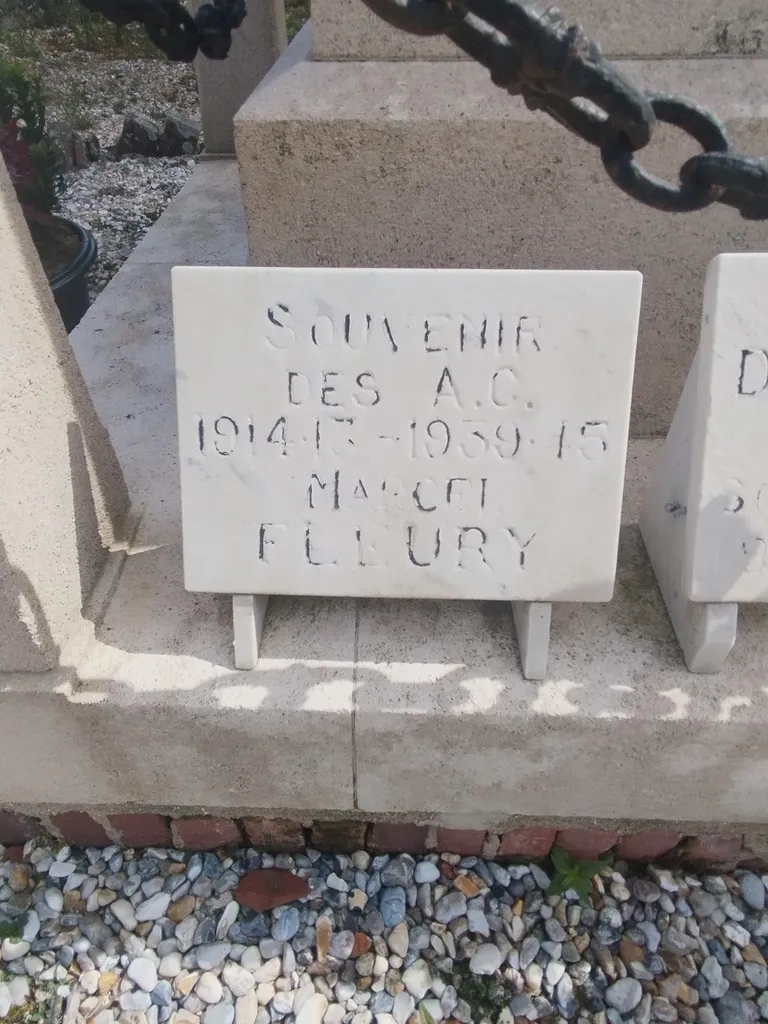 SOUVENIR
DES A.C.
1914.18 - 1939.45
MARCEL
FLEURY